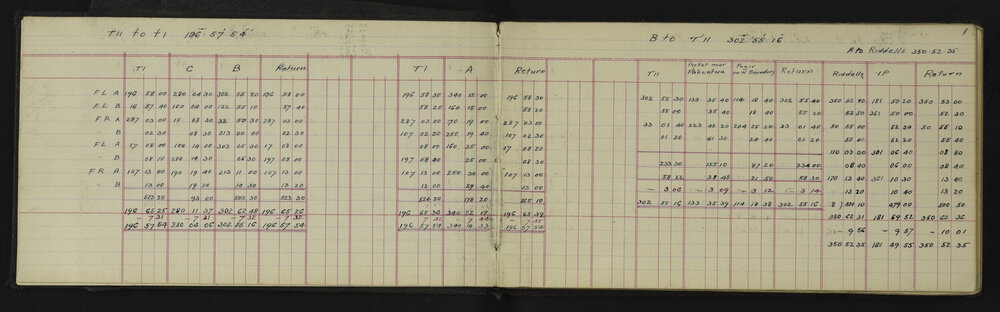 1
T11 to t1 196° 57' 54"
B to T11 302° 55' 16"
A to Riddells 350 52 35
T1 C B Return T1 A Return
T11 Return Riddells 1P Return
F L A 196 58 00 280 04 30 302 55 20 196 58 00 196 58 30 340 15 00 196 58 30 302 55 30 133 35 40 114 18 40 302 55 40 350 52 40 181 50 20 350 53 00
F L B 16 57 40 100 04 00 122 55 10 57 40 58 20 160 15 00 58 20 55 00 35 40 18 40 55 20 52 50 361 50 00 52 30
F R A 287 03 00 10 08 30 32 50 30 287 03 00 287 03 00 70 19 00 287 03 00 33 01 40 223 42 20 204 25 20 33 01 40 80 55 00 52 30 80 55 10
B 02 30 08 30 213 00 00 02 30 107 02 20 250 19 40 107 02 30 01 20 41 30 24 40 01 20 55 40 52 20 55 40
F L A 17 08 00 100 14 00 303 05 30 17 08 00 08 00 160 25 00 17 08 20 110 03 00 381 06 40 08 50
B 08 10 280 14 30 05 30 197 08 00 197 08 40 25 00 08 30 233 30 155 10 87 20 234 00 08 40 06 00 08 40
F R A 107 13 00 190 19 40 213 11 00 107 13 00 107 13 00 250 30 00 107 13 00 58 22 38 48 21 50 58 30 170 13 40 361 10 30 13 40
B 13 00 19 20 10 30 13 20 13 00 29 40 13 00 - 3 06 - 3 09 - 3 12 - 3 14 13 20 10 40 13 20
523 20 93 00 502 30 523 30 524 50 178 20 525 10 302 55 16 133 35 39 114 18 38 302 55 16 8) 500 10 479 00 500 50
196 65 25 280 11 37 302 62 48 196 65 26 196 65 36 340 22 17 196 65 39 350 62 31 181 59 52 350 62 36
- 7 31 - 7 31 - 7 32 - 7 32 - 7 42 - 7 44 - 7 45 - 9 56 - 9 57 - 10 01
196 57 54 280 04 06 302 55 16 196 57 54 196 57 54 340 14 33 196 57 54 350 52 35 181 49 55 350 52 35